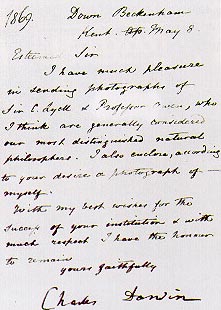 1869.
Down Beckenham
Kent. May 8.
Esteemed Sir
I have much pleasure
in sending photographs of
Sir C. Lyell & Professor Owen, who
I think are generally considered
our most distinguished natural
philosophers. I also enclose, according
to your desire a photograph of
myself.
With my best wishes for the
success of your institution & with
much respect I have the honour
to remain
yours faithfully
Charles Darwin